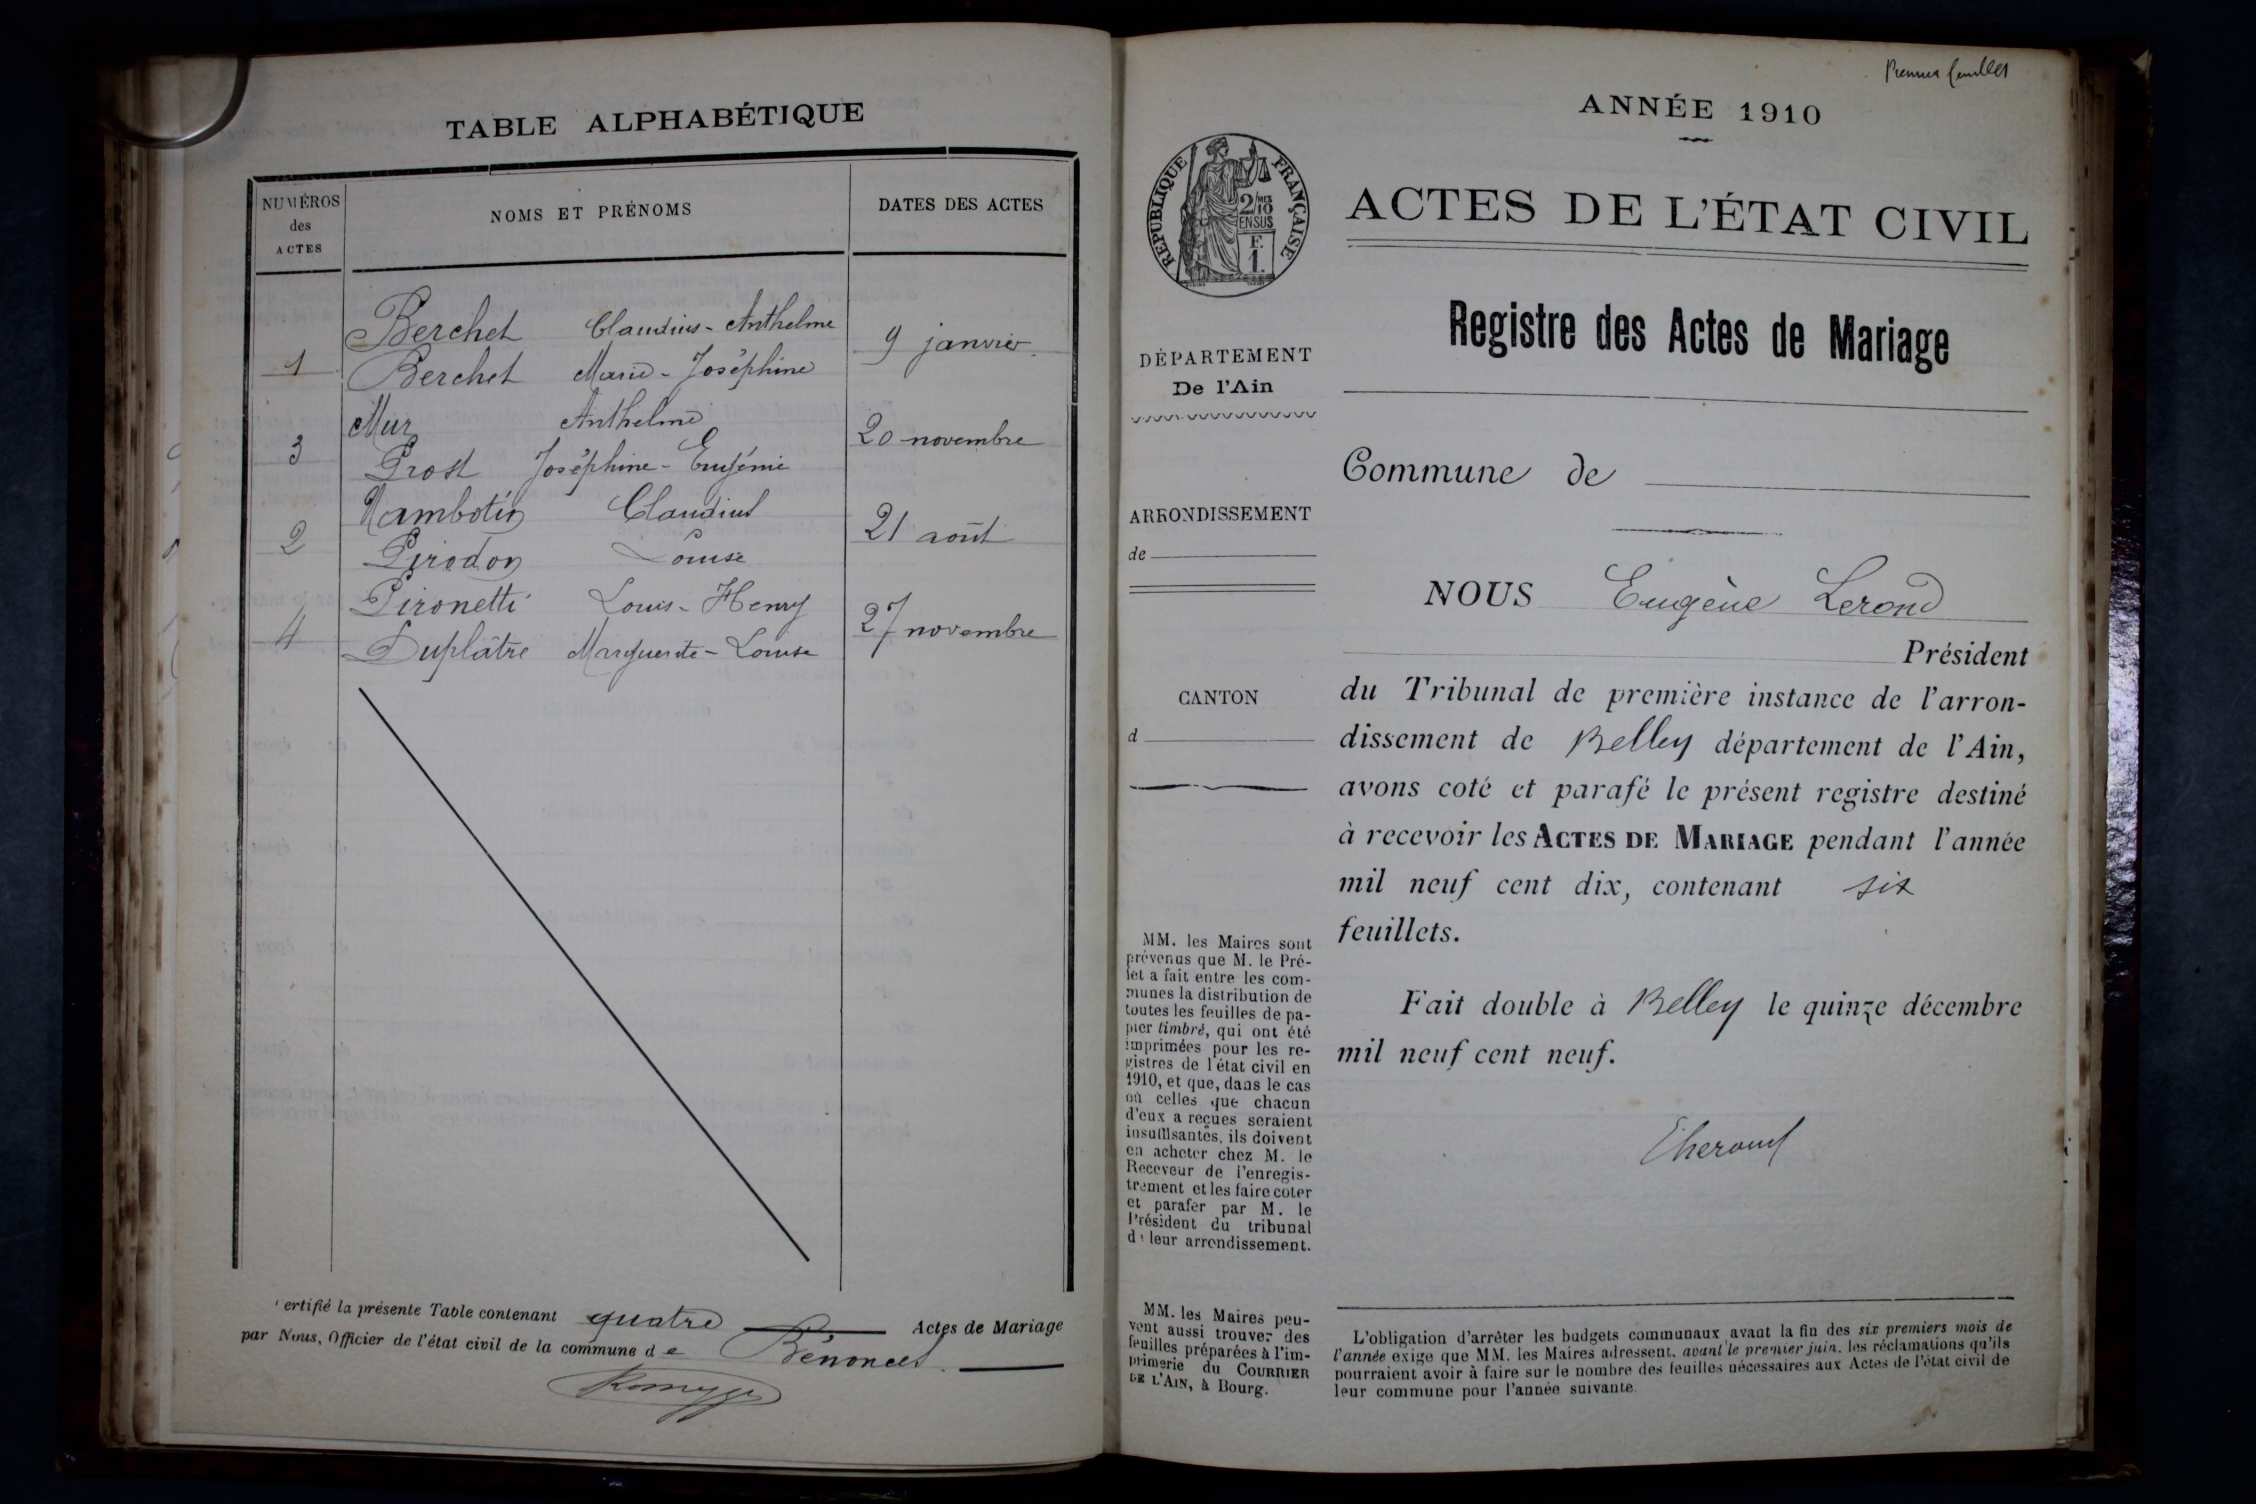 TABLE ALPHABÉTIQUE
NUMÉROS des ACTES
NOMS ET PRÉNOMS
DATES DES ACTES
1
Berchet Claudius-Anthelme
Berchet Marie-Joséphine
9 janvier
3
Mur Anthelme
Prost Joséphine-Eugénie
20 novembre
2
Nambotin Claudius
Pirodon Louise
21 août
4
Pironetti Louis-Henry
Duplâtre Marguerite-Louise
27 novembre
ertifié la présente Table contenant quatre Actes de Mariage
par Nous, Officier de l'état civil de la commune de Bénonces
Premier feuillet
ANNÉE 1910
REPUBLIQUE FRANÇAISE
2/10 MES
EN SUS
F.
1.
ACTES DE L'ÉTAT CIVIL
Registre des Actes de Mariage
DÉPARTEMENT
De l'Ain
ARRONDISSEMENT
de
CANTON
d
Commune de
NOUS Eugène Lerond
Président
du Tribunal de première instance de l'arron-
dissement de Belley département de l'Ain,
avons coté et parafé le présent registre destiné
à recevoir les ACTES DE MARIAGE pendant l'année
mil neuf cent dix, contenant six
feuillets.
Fait double à Belley le quinze décembre
mil neuf cent neuf.
MM. les Maires sont
prévenus que M. le Pré-
fet a fait entre les com-
munes la distribution de
toutes les feuilles de pa-
pier timbré, qui ont été
imprimées pour les re-
gistres de l'état civil en
1910, et que, dans le cas
où celles que chacun
d'eux a reçues seraient
insuffisantes, ils doivent
en acheter chez M. le
Receveur de l'enregis-
trement et les faire coter
et parafer par M. le
Président du tribunal
de leur arrondissement.
MM. les Maires peu-
vent aussi trouver des
feuilles préparées à l'im-
primerie du COURRIER
DE L'AIN, à Bourg.
L'obligation d'arrêter les budgets communaux avant la fin des six premiers mois de
l'année exige que MM. les Maires adressent, avant le premier juin, les réclamations qu'ils
pourraient avoir à faire sur le nombre des feuilles nécessaires aux Actes de l'état civil de
leur commune pour l'année suivante.